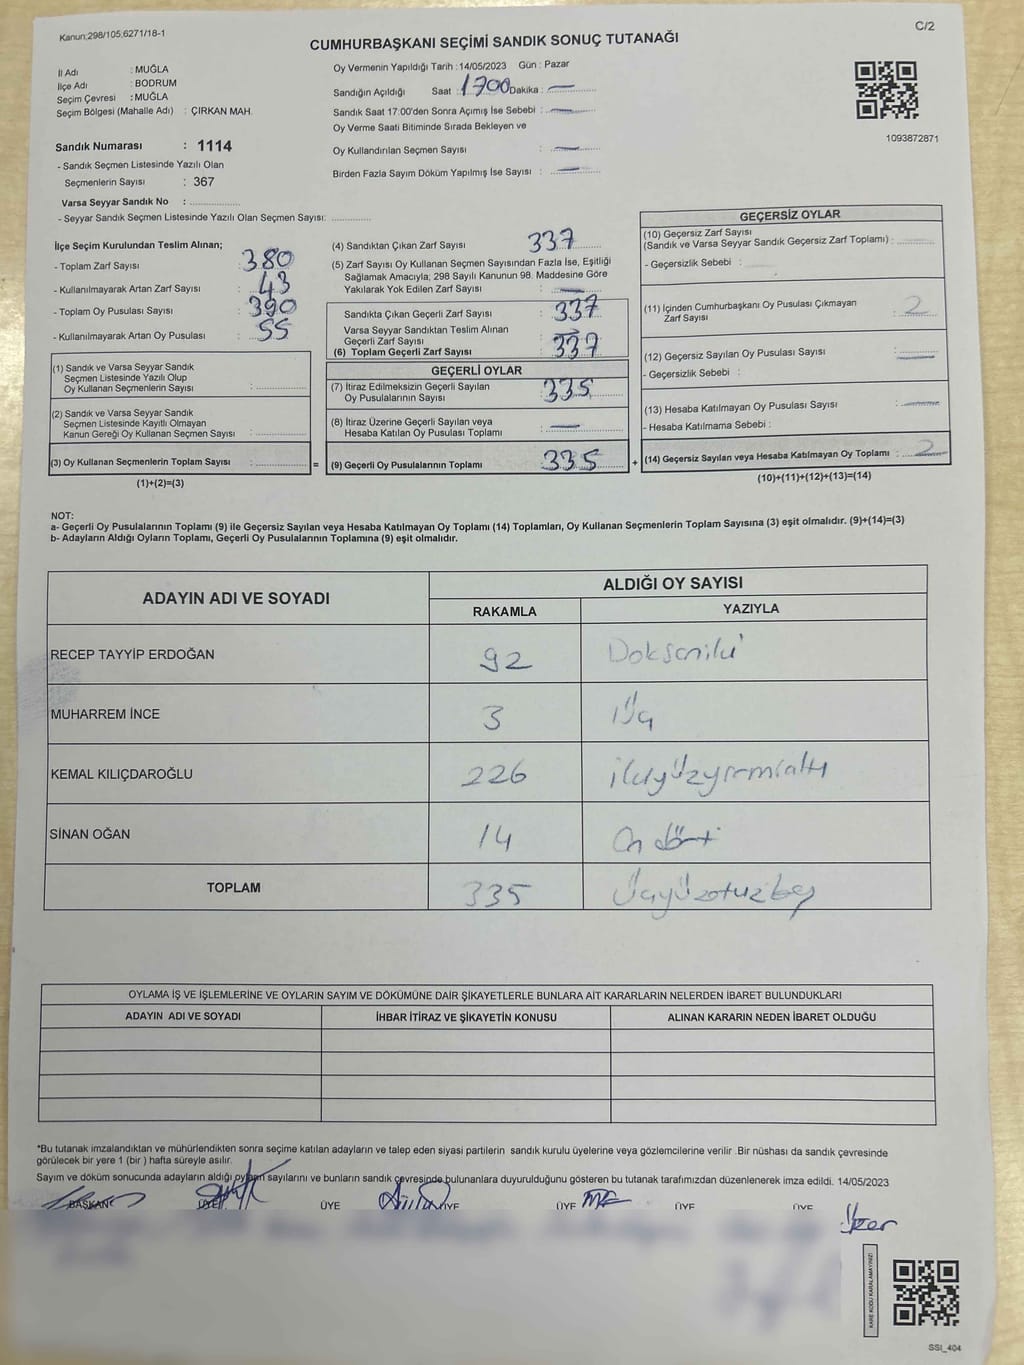 Kanun;298/105;6271/18-1
C/2
CUMHURBAŞKANI SEÇİMİ SANDIK SONUÇ TUTANAĞI
İl Adı : MUĞLA
İlçe Adı : BODRUM
Seçim Çevresi : MUĞLA
Seçim Bölgesi (Mahalle Adı) : ÇIRKAN MAH.
Sandık Numarası : 1114
- Sandık Seçmen Listesinde Yazılı Olan
Seçmenlerin Sayısı : 367
Varsa Seyyar Sandık No : ..................
- Seyyar Sandık Seçmen Listesinde Yazılı Olan Seçmen Sayısı: ..............
Oy Vermenin Yapıldığı Tarih :14/05/2023 Gün : Pazar
Sandığın Açıldığı Saat : 1700 Dakika : —
Sandık Saat 17:00'den Sonra Açımış İse Sebebi : —
Oy Verme Saati Bitiminde Sırada Bekleyen ve
Oy Kullandırılan Seçmen Sayısı : —
Birden Fazla Sayım Döküm Yapılmış İse Sayısı : —
1093872871
İlçe Seçim Kurulundan Teslim Alınan;
- Toplam Zarf Sayısı : 380
- Kullanılmayarak Artan Zarf Sayısı : 43
- Toplam Oy Pusulası Sayısı : 390
- Kullanılmayarak Artan Oy Pusulası : 55
(1) Sandık ve Varsa Seyyar Sandık
Seçmen Listesinde Yazılı Olup
Oy Kullanan Seçmenlerin Sayısı : ..............
(2) Sandık ve Varsa Seyyar Sandık
Seçmen Listesinde Kayıtlı Olmayan
Kanun Gereği Oy Kullanan Seçmen Sayısı : ..............
(3) Oy Kullanan Seçmenlerin Toplam Sayısı : ..............
(1)+(2)=(3)
=
(4) Sandıktan Çıkan Zarf Sayısı : 337
(5) Zarf Sayısı Oy Kullanan Seçmen Sayısından Fazla İse, Eşitliği
Sağlamak Amacıyla; 298 Sayılı Kanunun 98. Maddesine Göre
Yakılarak Yok Edilen Zarf Sayısı : —
Sandıkta Çıkan Geçerli Zarf Sayısı : 337
Varsa Seyyar Sandıktan Teslim Alınan
Geçerli Zarf Sayısı : —
(6) Toplam Geçerli Zarf Sayısı : 337
GEÇERLİ OYLAR
(7) İtiraz Edilmeksizin Geçerli Sayılan
Oy Pusulalarının Sayısı : 335
(8) İtiraz Üzerine Geçerli Sayılan veya
Hesaba Katılan Oy Pusulası Toplamı : —
(9) Geçerli Oy Pusulalarının Toplamı : 335
+
GEÇERSİZ OYLAR
(10) Geçersiz Zarf Sayısı
(Sandık ve Varsa Seyyar Sandık Geçersiz Zarf Toplamı) : ..........
- Geçersizlik Sebebi :
(11) İçinden Cumhurbaşkanı Oy Pusulası Çıkmayan
Zarf Sayısı : 2
(12) Geçersiz Sayılan Oy Pusulası Sayısı : —
- Geçersizlik Sebebi :
(13) Hesaba Katılmayan Oy Pusulası Sayısı : —
- Hesaba Katılmama Sebebi :
(14) Geçersiz Sayılan veya Hesaba Katılmayan Oy Toplamı : 2
(10)+(11)+(12)+(13)=(14)
NOT:
a- Geçerli Oy Pusulalarının Toplamı (9) ile Geçersiz Sayılan veya Hesaba Katılmayan Oy Toplamı (14) Toplamları, Oy Kullanan Seçmenlerin Toplam Sayısına (3) eşit olmalıdır. (9)+(14)=(3)
b- Adayların Aldığı Oyların Toplamı, Geçerli Oy Pusulalarının Toplamına (9) eşit olmalıdır.
ADAYIN ADI VE SOYADI ALDIĞI OY SAYISI
RAKAMLA YAZIYLA
RECEP TAYYİP ERDOĞAN 92 Doksaniki
MUHARREM İNCE 3 Üç
KEMAL KILIÇDAROĞLU 226 ikiyüzyirmialtı
SİNAN OĞAN 14 On dört
TOPLAM 335 Üçyüzotuzbeş
OYLAMA İŞ VE İŞLEMLERİNE VE OYLARIN SAYIM VE DÖKÜMÜNE DAİR ŞİKAYETLERLE BUNLARA AİT KARARLARIN NELERDEN İBARET BULUNDUKLARI
ADAYIN ADI VE SOYADI İHBAR İTİRAZ VE ŞİKAYETİN KONUSU ALINAN KARARIN NEDEN İBARET OLDUĞU
*Bu tutanak imzalandıktan ve mühürlendikten sonra seçime katılan adayların ve talep eden siyasi partilerin sandık kurulu üyelerine veya gözlemcilerine verilir .Bir nüshası da sandık çevresinde
görülecek bir yere 1 (bir ) hafta süreyle asılır.
Sayım ve döküm sonucunda adayların aldığı oyların sayılarını ve bunların sandık çevresinde bulunanlara duyurulduğunu gösteren bu tutanak tarafımızdan düzenlenerek imza edildi. 14/05/2023
BAŞKAN ÜYE ÜYE ÜYE ÜYE ÜYE ÜYE
İlker
KARE KODU KARALAMAYINIZ!
SSI_404